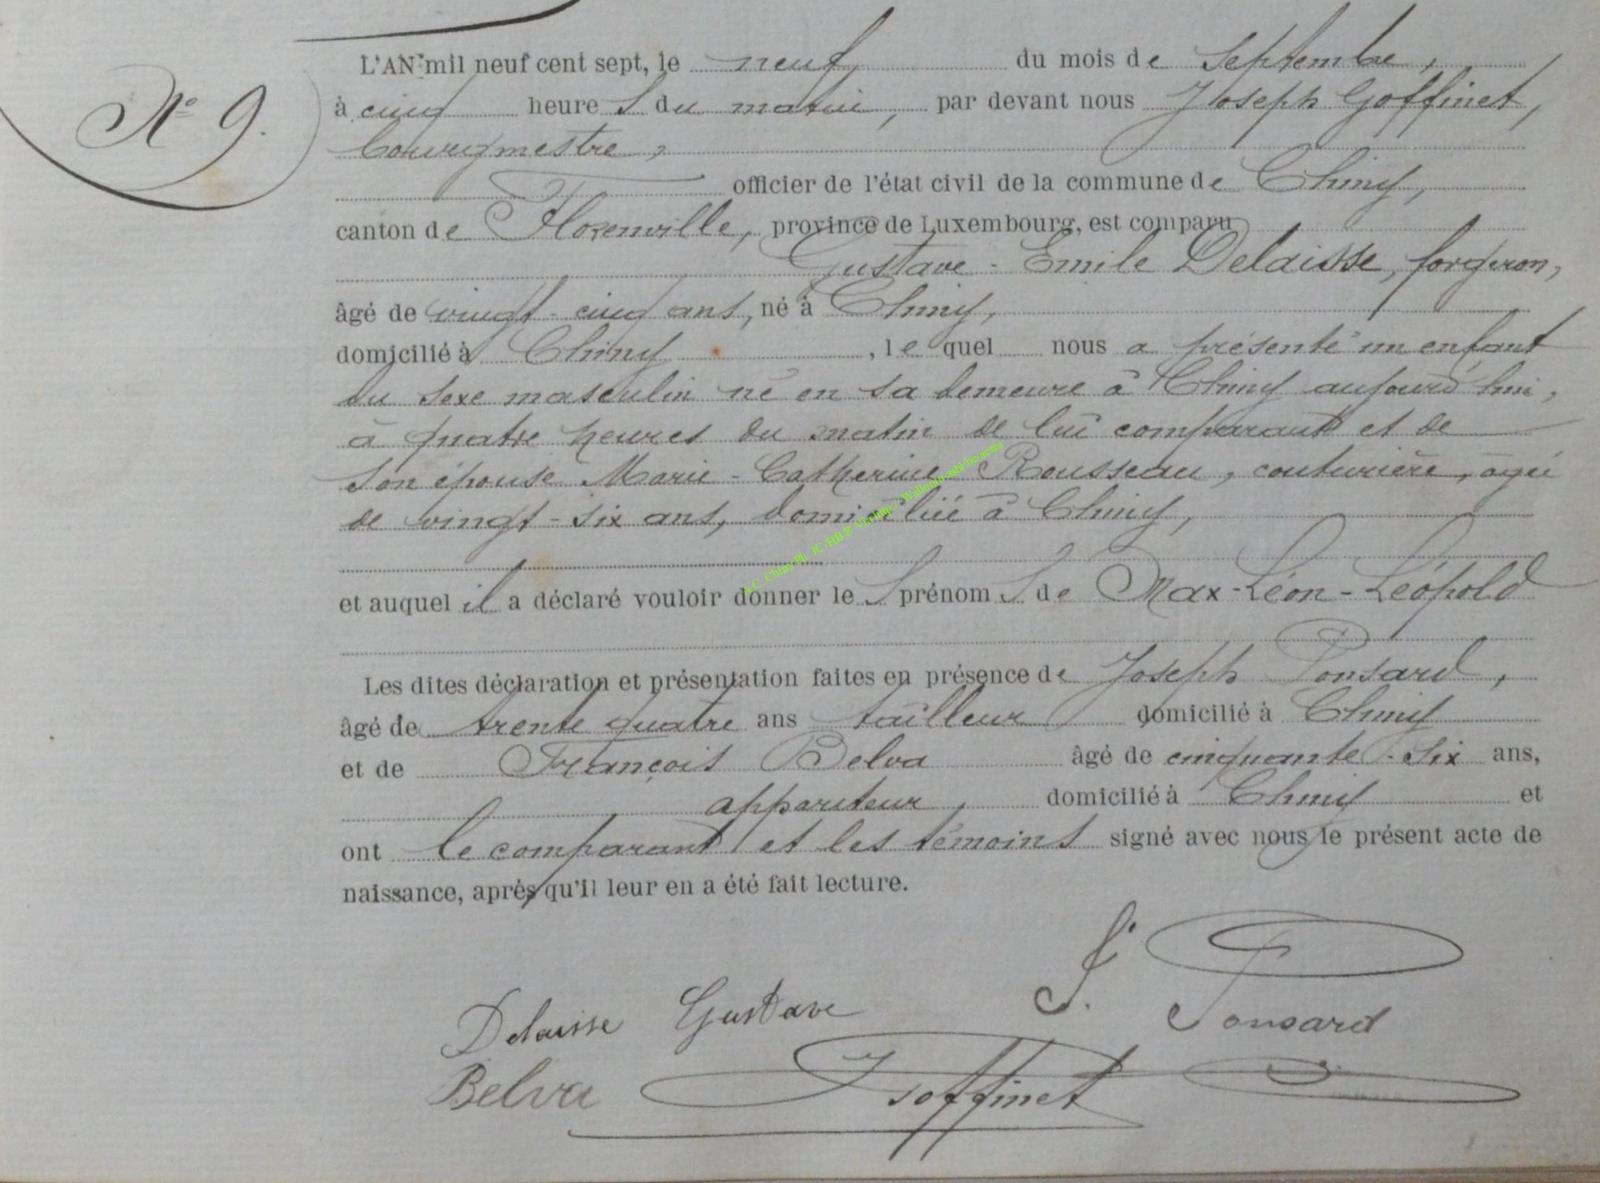 N° 9.
L'AN mil neuf cent sept, le neuf du mois de Septembre,
à cinq heure s du matin, par devant nous Joseph Goffinet,
bourgmestre,
officier de l'état civil de la commune de Chiny,
canton de Florenville, province de Luxembourg, est comparu
Gustave-Emile Delaisse, forgeron,
âgé de vingt-cinq ans, né à Chiny,
domicilié à Chiny, le quel nous a présenté un enfant
du sexe masculin né en sa demeure à Chiny aujourd'hui,
à quatre heures du matin de lui comparant et de
son épouse Marie-Catherine Rousseau, couturière, âgée
de vingt-six ans, domiciliée à Chiny,
et auquel il a déclaré vouloir donner le s prénom s de Max-Léon-Léopold
Les dites déclaration et présentation faites en présence de Joseph Ponsard,
âgé de trente quatre ans tailleur domicilié à Chiny
et de François Belva âgé de cinquante-six ans,
appariteur, domicilié à Chiny et
ont le comparant et les témoins signé avec nous le présent acte de
naissance, après qu'il leur en a été fait lecture.
J. Ponsard
Delaisse Gustave
Belva Goffinet